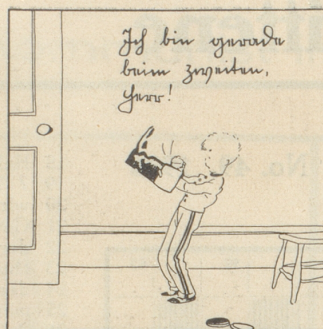 Ich bin gerade
beim zweiten,
Herr!